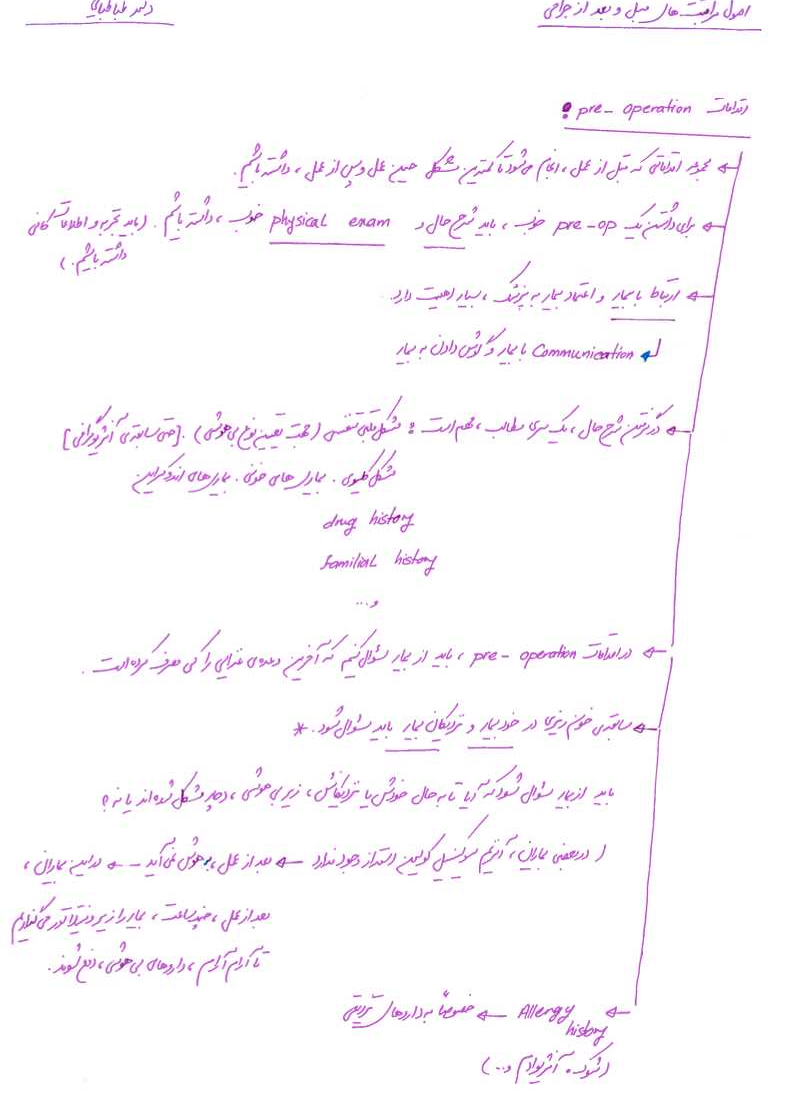 اصول مراقبت های قبل و بعد از جراحی
دکتر طباطبایی
اقدامات pre- operation :
← مجموعه اقداماتی که قبل از عمل ، انجام می شود تا کمترین مشکل حین عمل و پس از عمل ، داشته باشیم.
← برای داشتن یک pre-op خوب ، باید شرح حال و physical exam خوب ، داشته باشیم . (باید تجربه و اطلاعات کافی
داشته باشیم .)
← ارتباط با بیمار و اعتماد بیمار به پزشک ، بسیار اهمیت دارد.
↲ Communication با بیمار و گوش دادن به بیمار
← در گرفتن شرح حال ، یک سری مطالب ، مهم است : مشکل قلبی تنفسی (جهت تعیین نوع بی هوشی) . [حتی سابقه ی آنژیوگرافی]
مشکل کلیوی . بیماری های خونی . بیماری های اندوکراین
drug history
familial history
و ...
← در اقدامات pre- operation ، باید از بیمار سئوال کنیم که آخرین وعده ی غذایی را کی مصرف کرده است .
← سابقه ی خون ریزی در خود بیمار و نزدیکان بیمار باید سئوال شود . *
باید از بیمار سئوال شود که آیا تا به حال خودش یا نزدیکانش ، زیر بی هوشی ، دچار مشکل شده اند یا نه ؟
( در بعضی بیماران ، آنزیم سوکسنیل کولین استراز وجود ندارد ← بعد از عمل ، به هوش نمی آید ← در این بیماران ،
بعد از عمل ، چند ساعت ، بیمار را زیر ونتیلاتور می گذاریم
تا آرام آرام ، داروهای بی هوشی ، دفع شوند .
← Allergy history ← خصوصاً به داروهای تزریقی
(شوک ، آنژیوادم و ...)